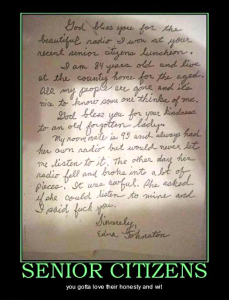 God bless you for the
beautiful radio I won at your
recent senior citizens luncheon.
I am 84 years old and live
at the county home for the aged.
All my people are gone and its
nice to know some one thinks of me.
God bless you for your kindness
to an old forgotten lady.
My roommate is 95 and always had
her own radio but would never let
me listen to it. The other day her
radio fell and broke into a lot of
pieces. It was awful. She asked
if she could listen to mine and
I said fuck you.
Sincerely,
Edna Johnston
SENIOR CITIZENS
you gotta love their honesty and wit